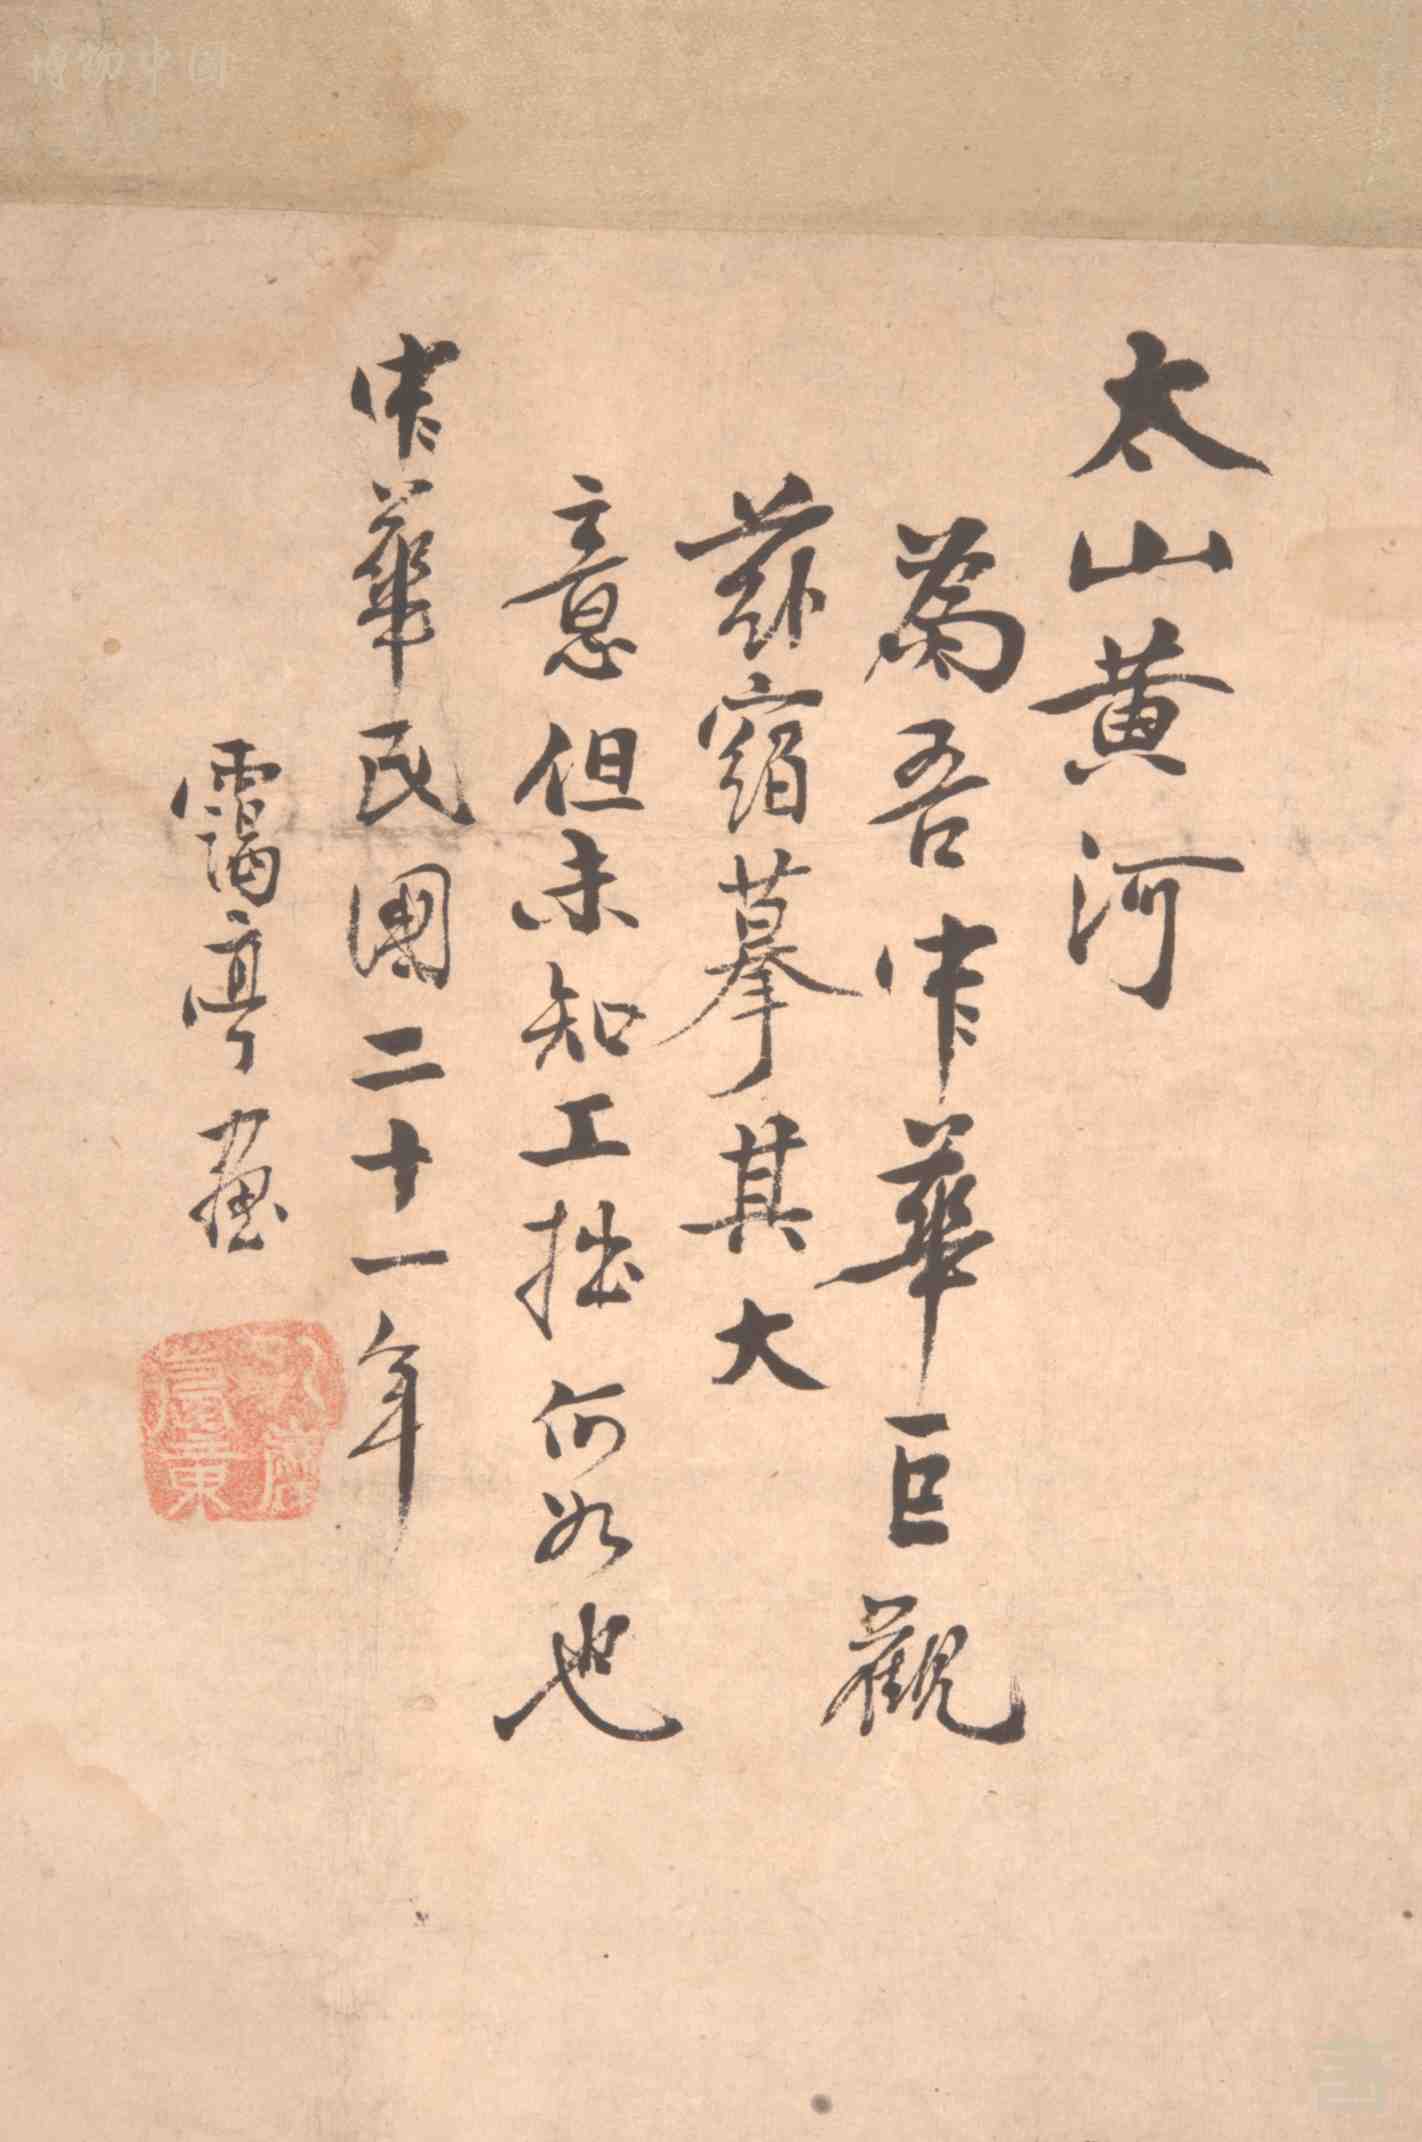 太山黄河
為吾中華巨觀
茲窃摹其大
意但未知工拙何如也
中華民國二十一年
靄亭畫
博物中国